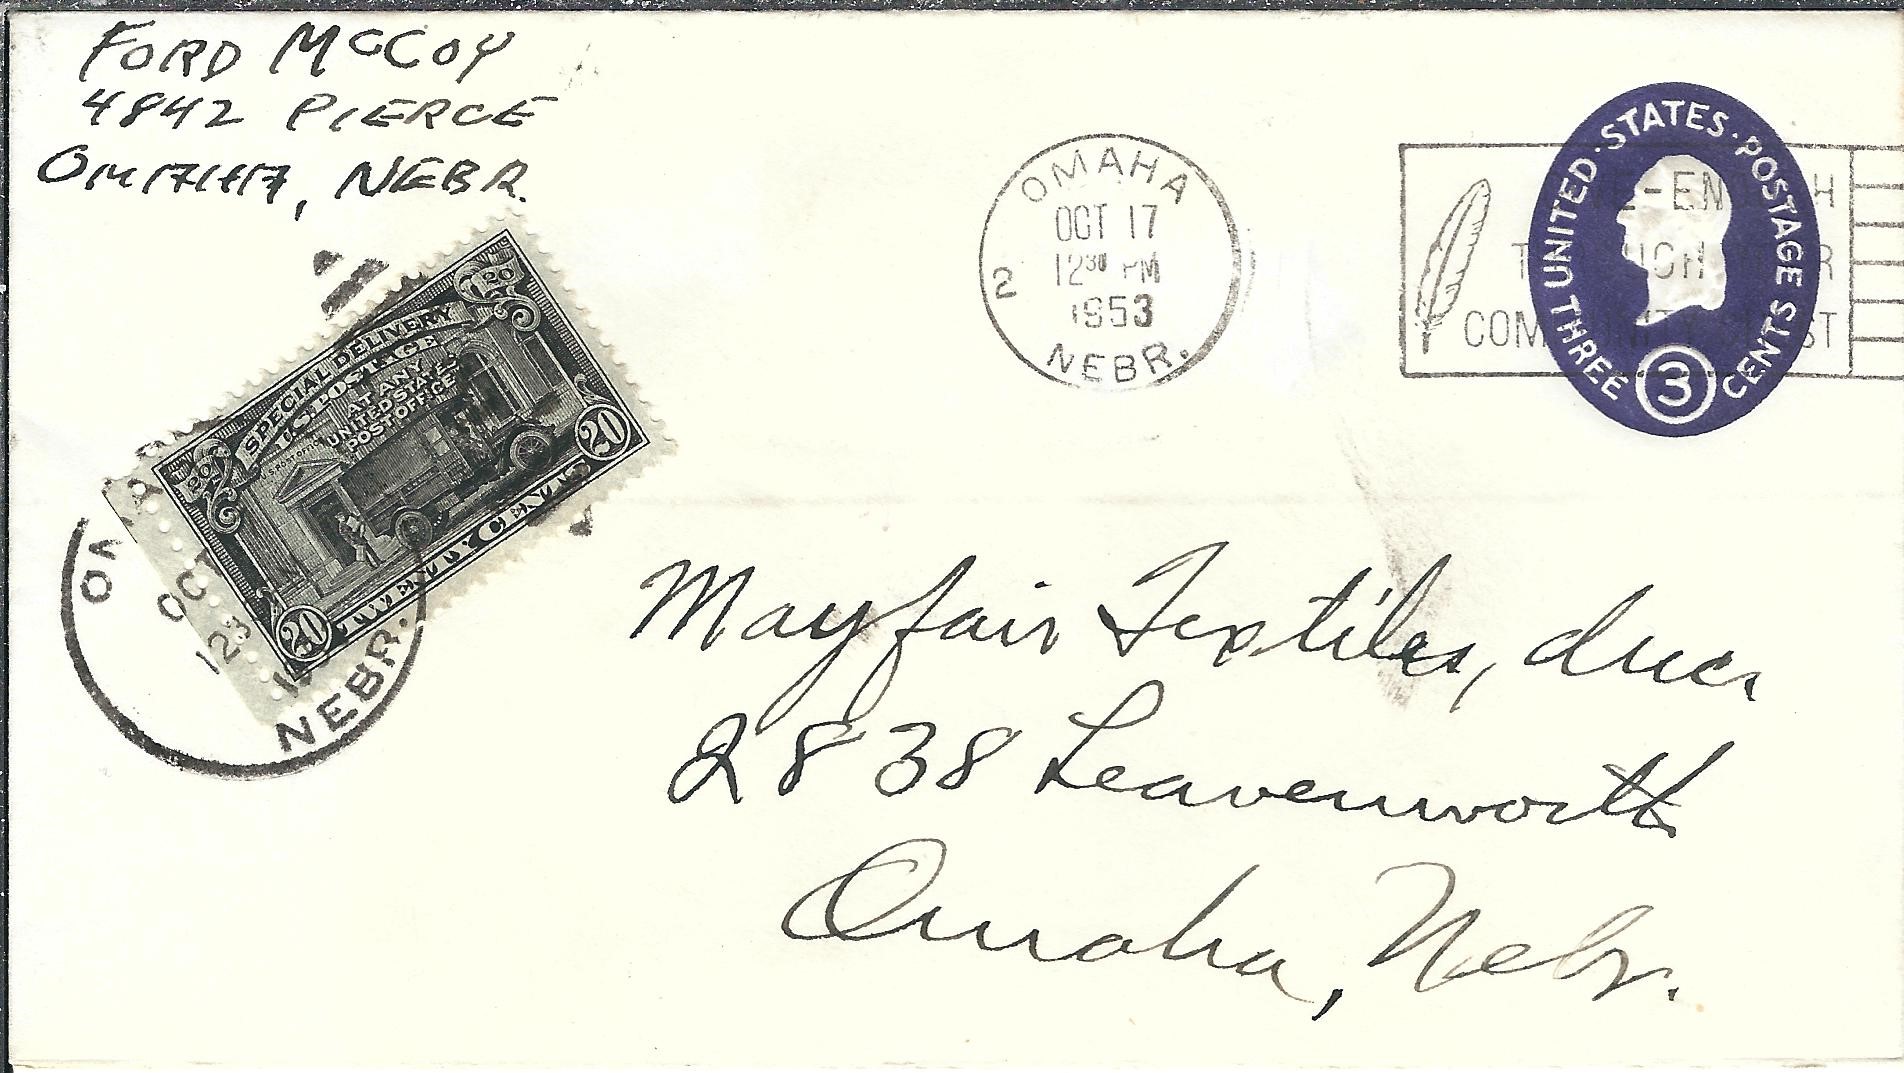 FORD McCOY
4842 PIERCE
OMAHA, NEBR.
OMAHA
OCT 17
12 30 PM
1953
2
NEBR.
GIVE-ENOUGH
THROUGH YOUR
COMMUNITY CHEST
UNITED · STATES · POSTAGE
THREE CENTS
3
20 20
SPECIAL DELIVERY
U.S. POSTAGE
AT ANY
UNITED STATES
POST OFFICE
U.S. POST OFFICE
20 20
TWENTY CENTS
OMA
OCT
123
NEBR.
Mayfair Textiles, Inc.
2838 Leavenworth
Omaha, Nebr.